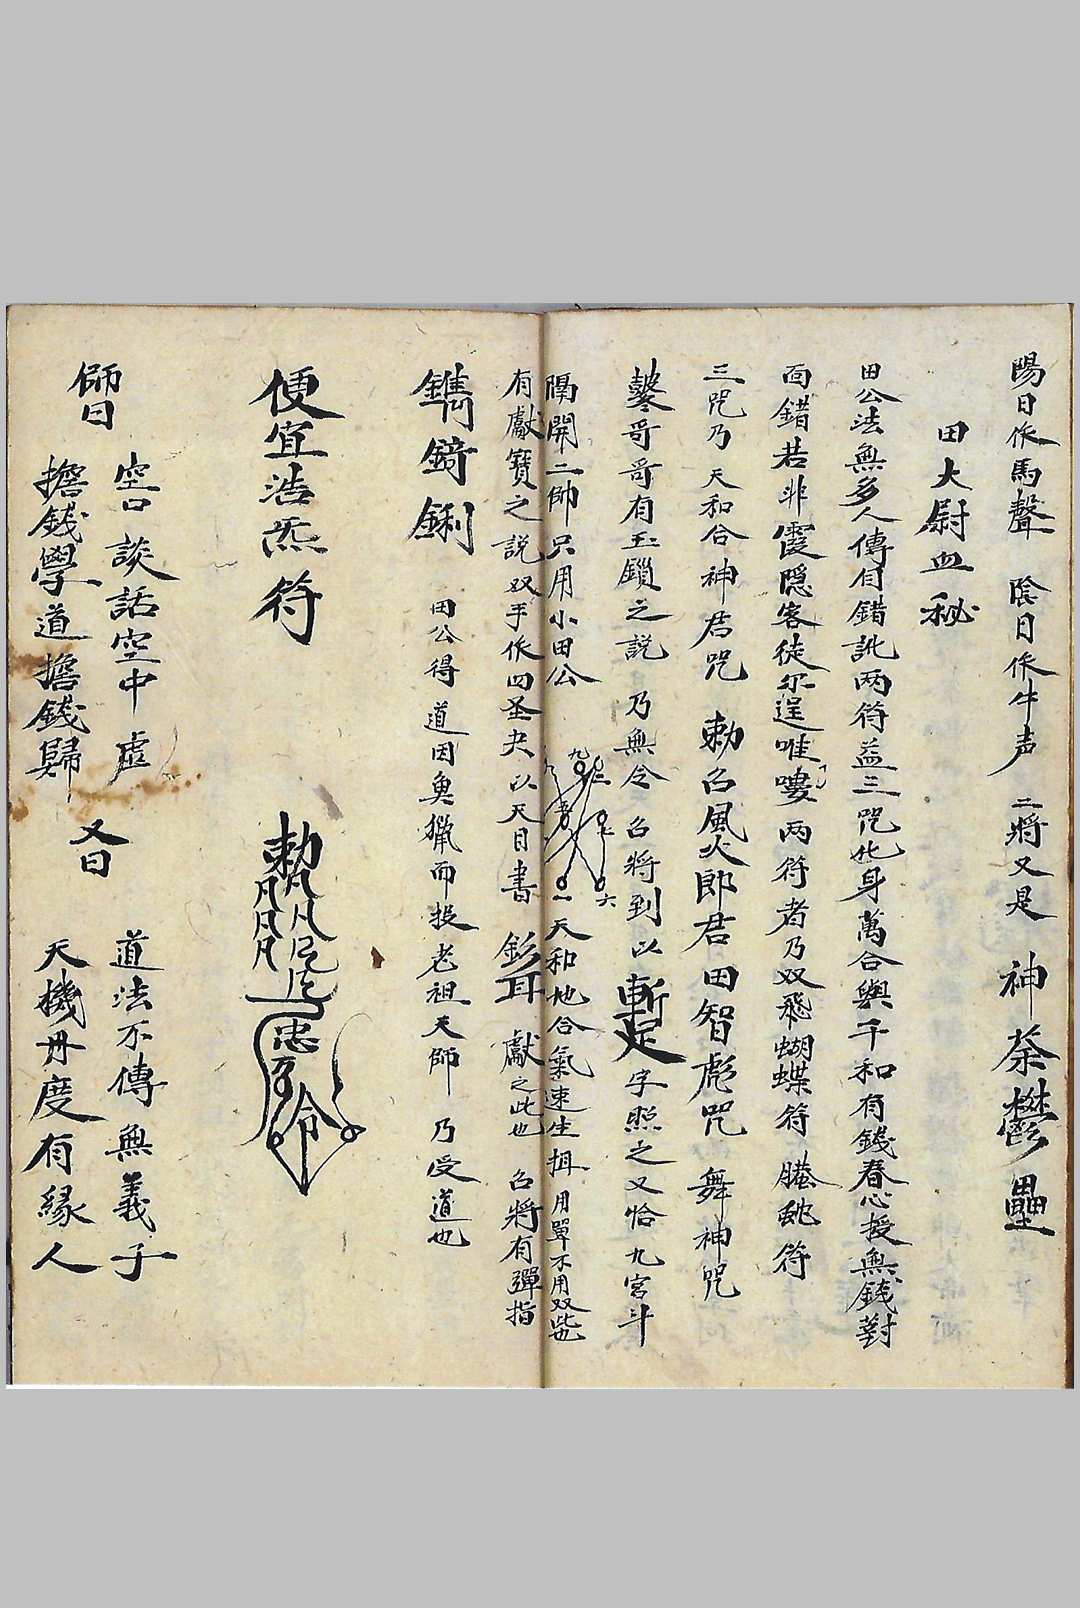 陽日作馬聲 陰日作牛声 二將又是 神荼鬱壘
田大尉血秘
田公法無多人傳自錯訛两符益三咒化身萬合與千和有錢春心授無錢對
面錯若非霞隱客徒尔逞唯嘍 两符者乃双飛蝴蝶符 騰蛇符
三咒乃天和合神君咒 勅召風火郎君田智彪咒 舞神咒
鑿哥哥有玉鎖之説 乃無令召將到以 字照之又恰九宮斗
隔開二帥只用小田公 九 二 七 五 一 六 天和地合氣速生揖 用單不用双此也
有獻寶之説双手作四圣夬以天目書 獻之此也 召將有彈指
田公得道因奐獵而投老祖天師 乃受道也
便宜浩炁符
勅 凡 凡 凡 凡 忠 令
師曰
空口談話空中虛
擔錢學道擔錢歸
又曰
道法不傳無義子
天機毋度有緣人